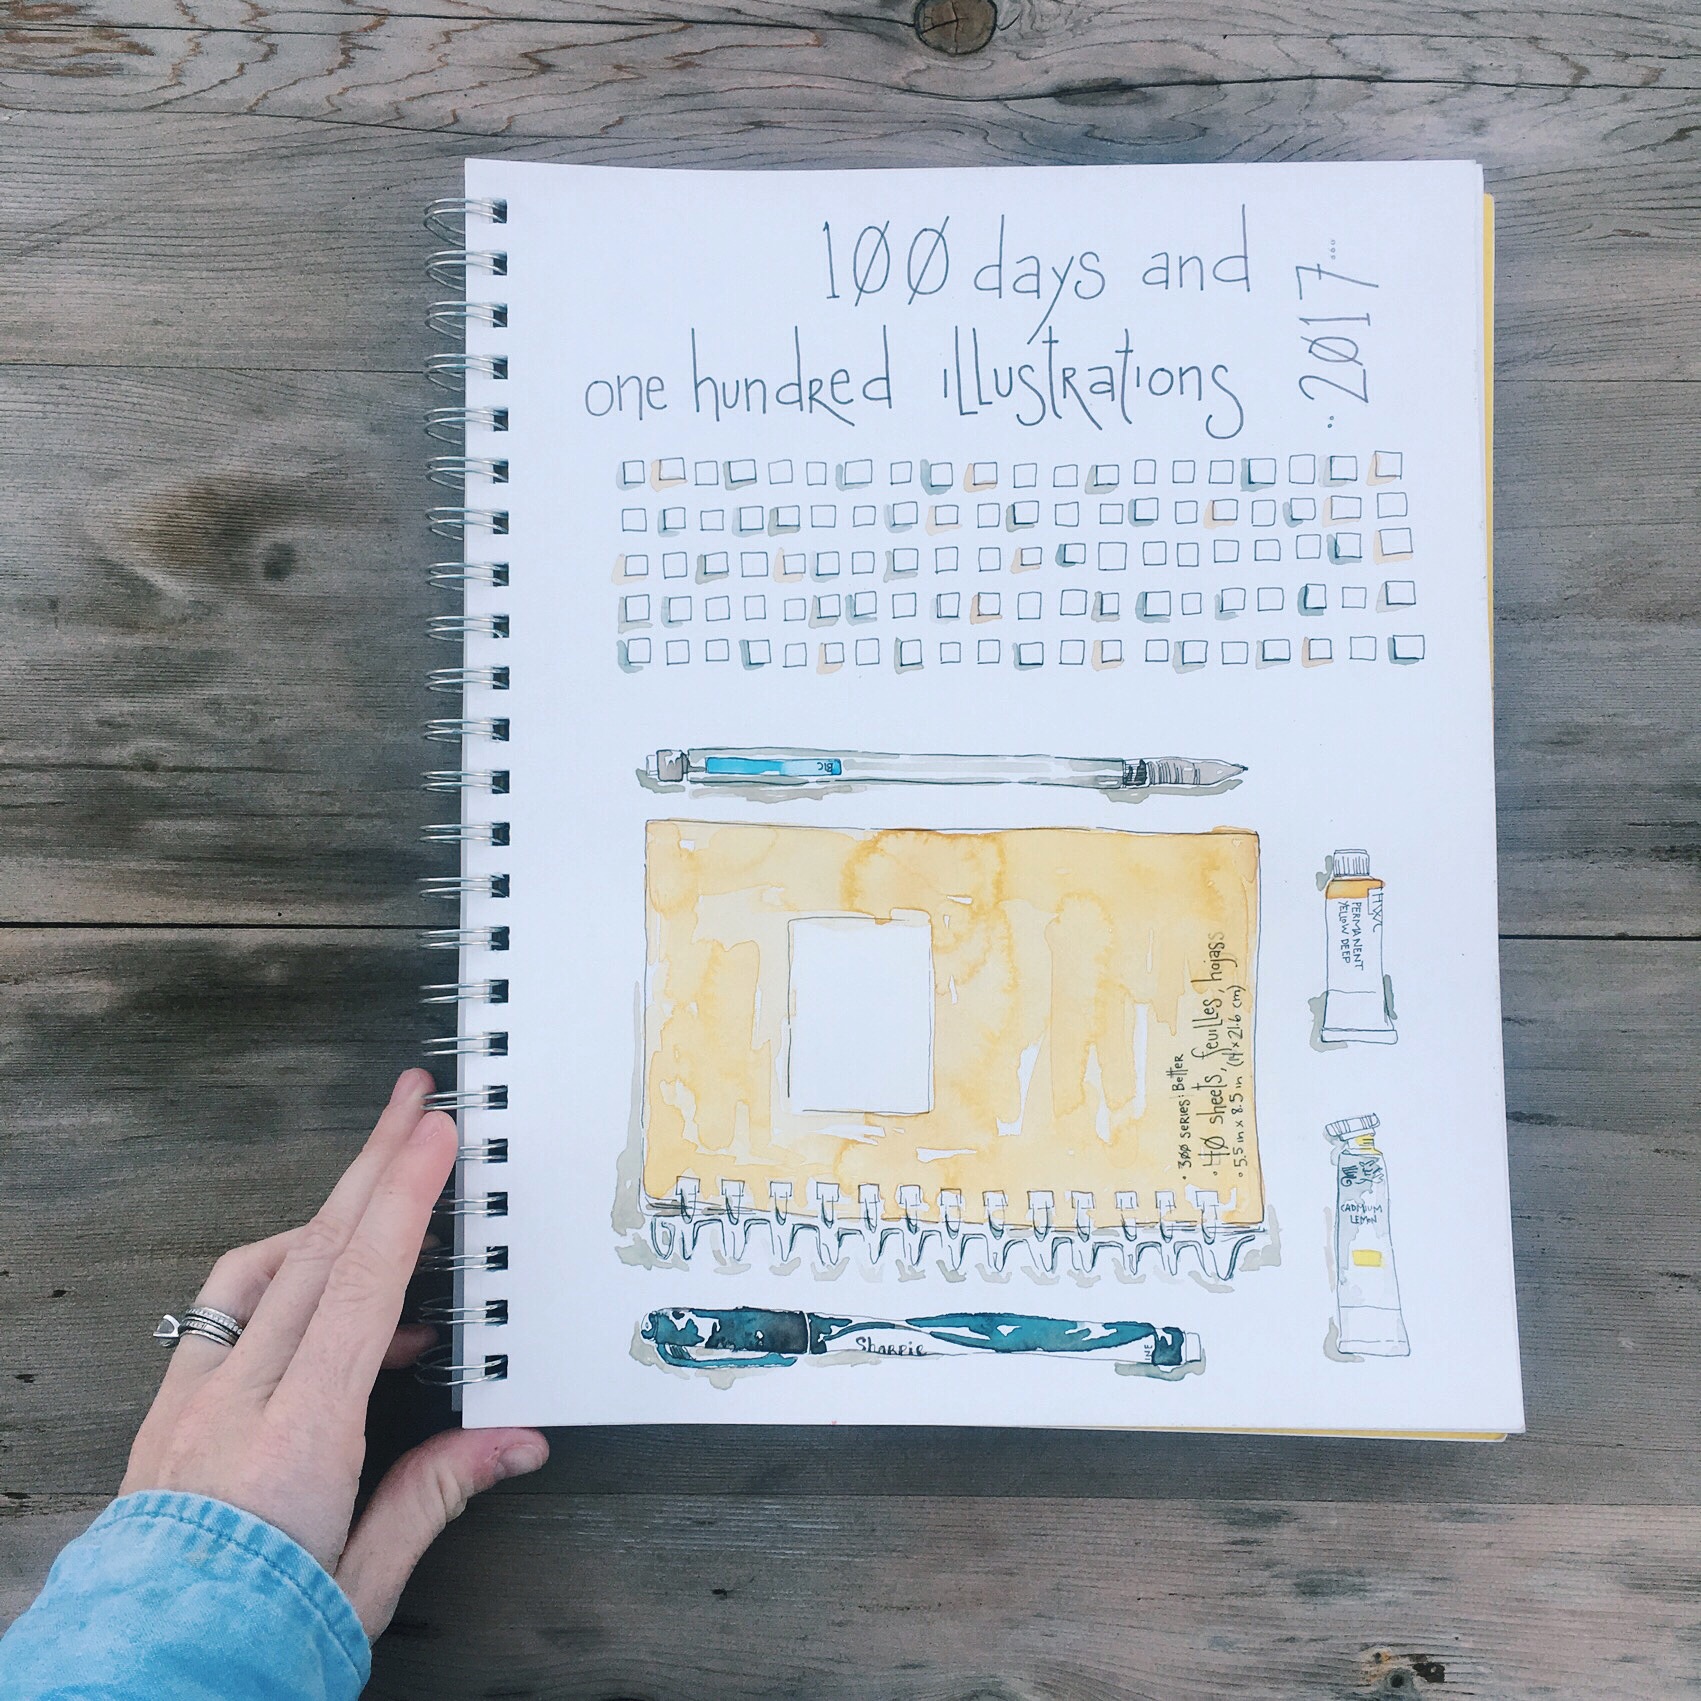 100 days and
one hundred illustrations
2017
BIC
300 series: Better
40 sheets, feuilles, hojass
5.5 in x 8.5 in (14 x 21.6 cm)
HWC
PERMANENT
YELLOW DEEP
CADMIUM
LEMON
Sharpie